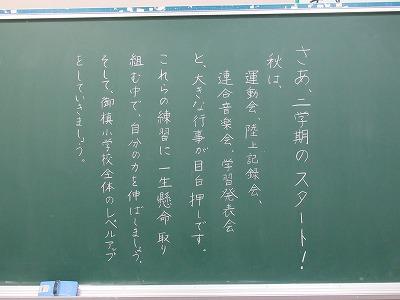 さあ、二学期のスタート!
秋は、
運動会、陸上記録会、
連合音楽会、学習発表会
と、大きな行事が目白押しです。
これらの練習に一生懸命取り
組む中で、自分の力を伸ばしましょう。
そして、御槙小学校全体のレベルアップ
をしていきましょう。